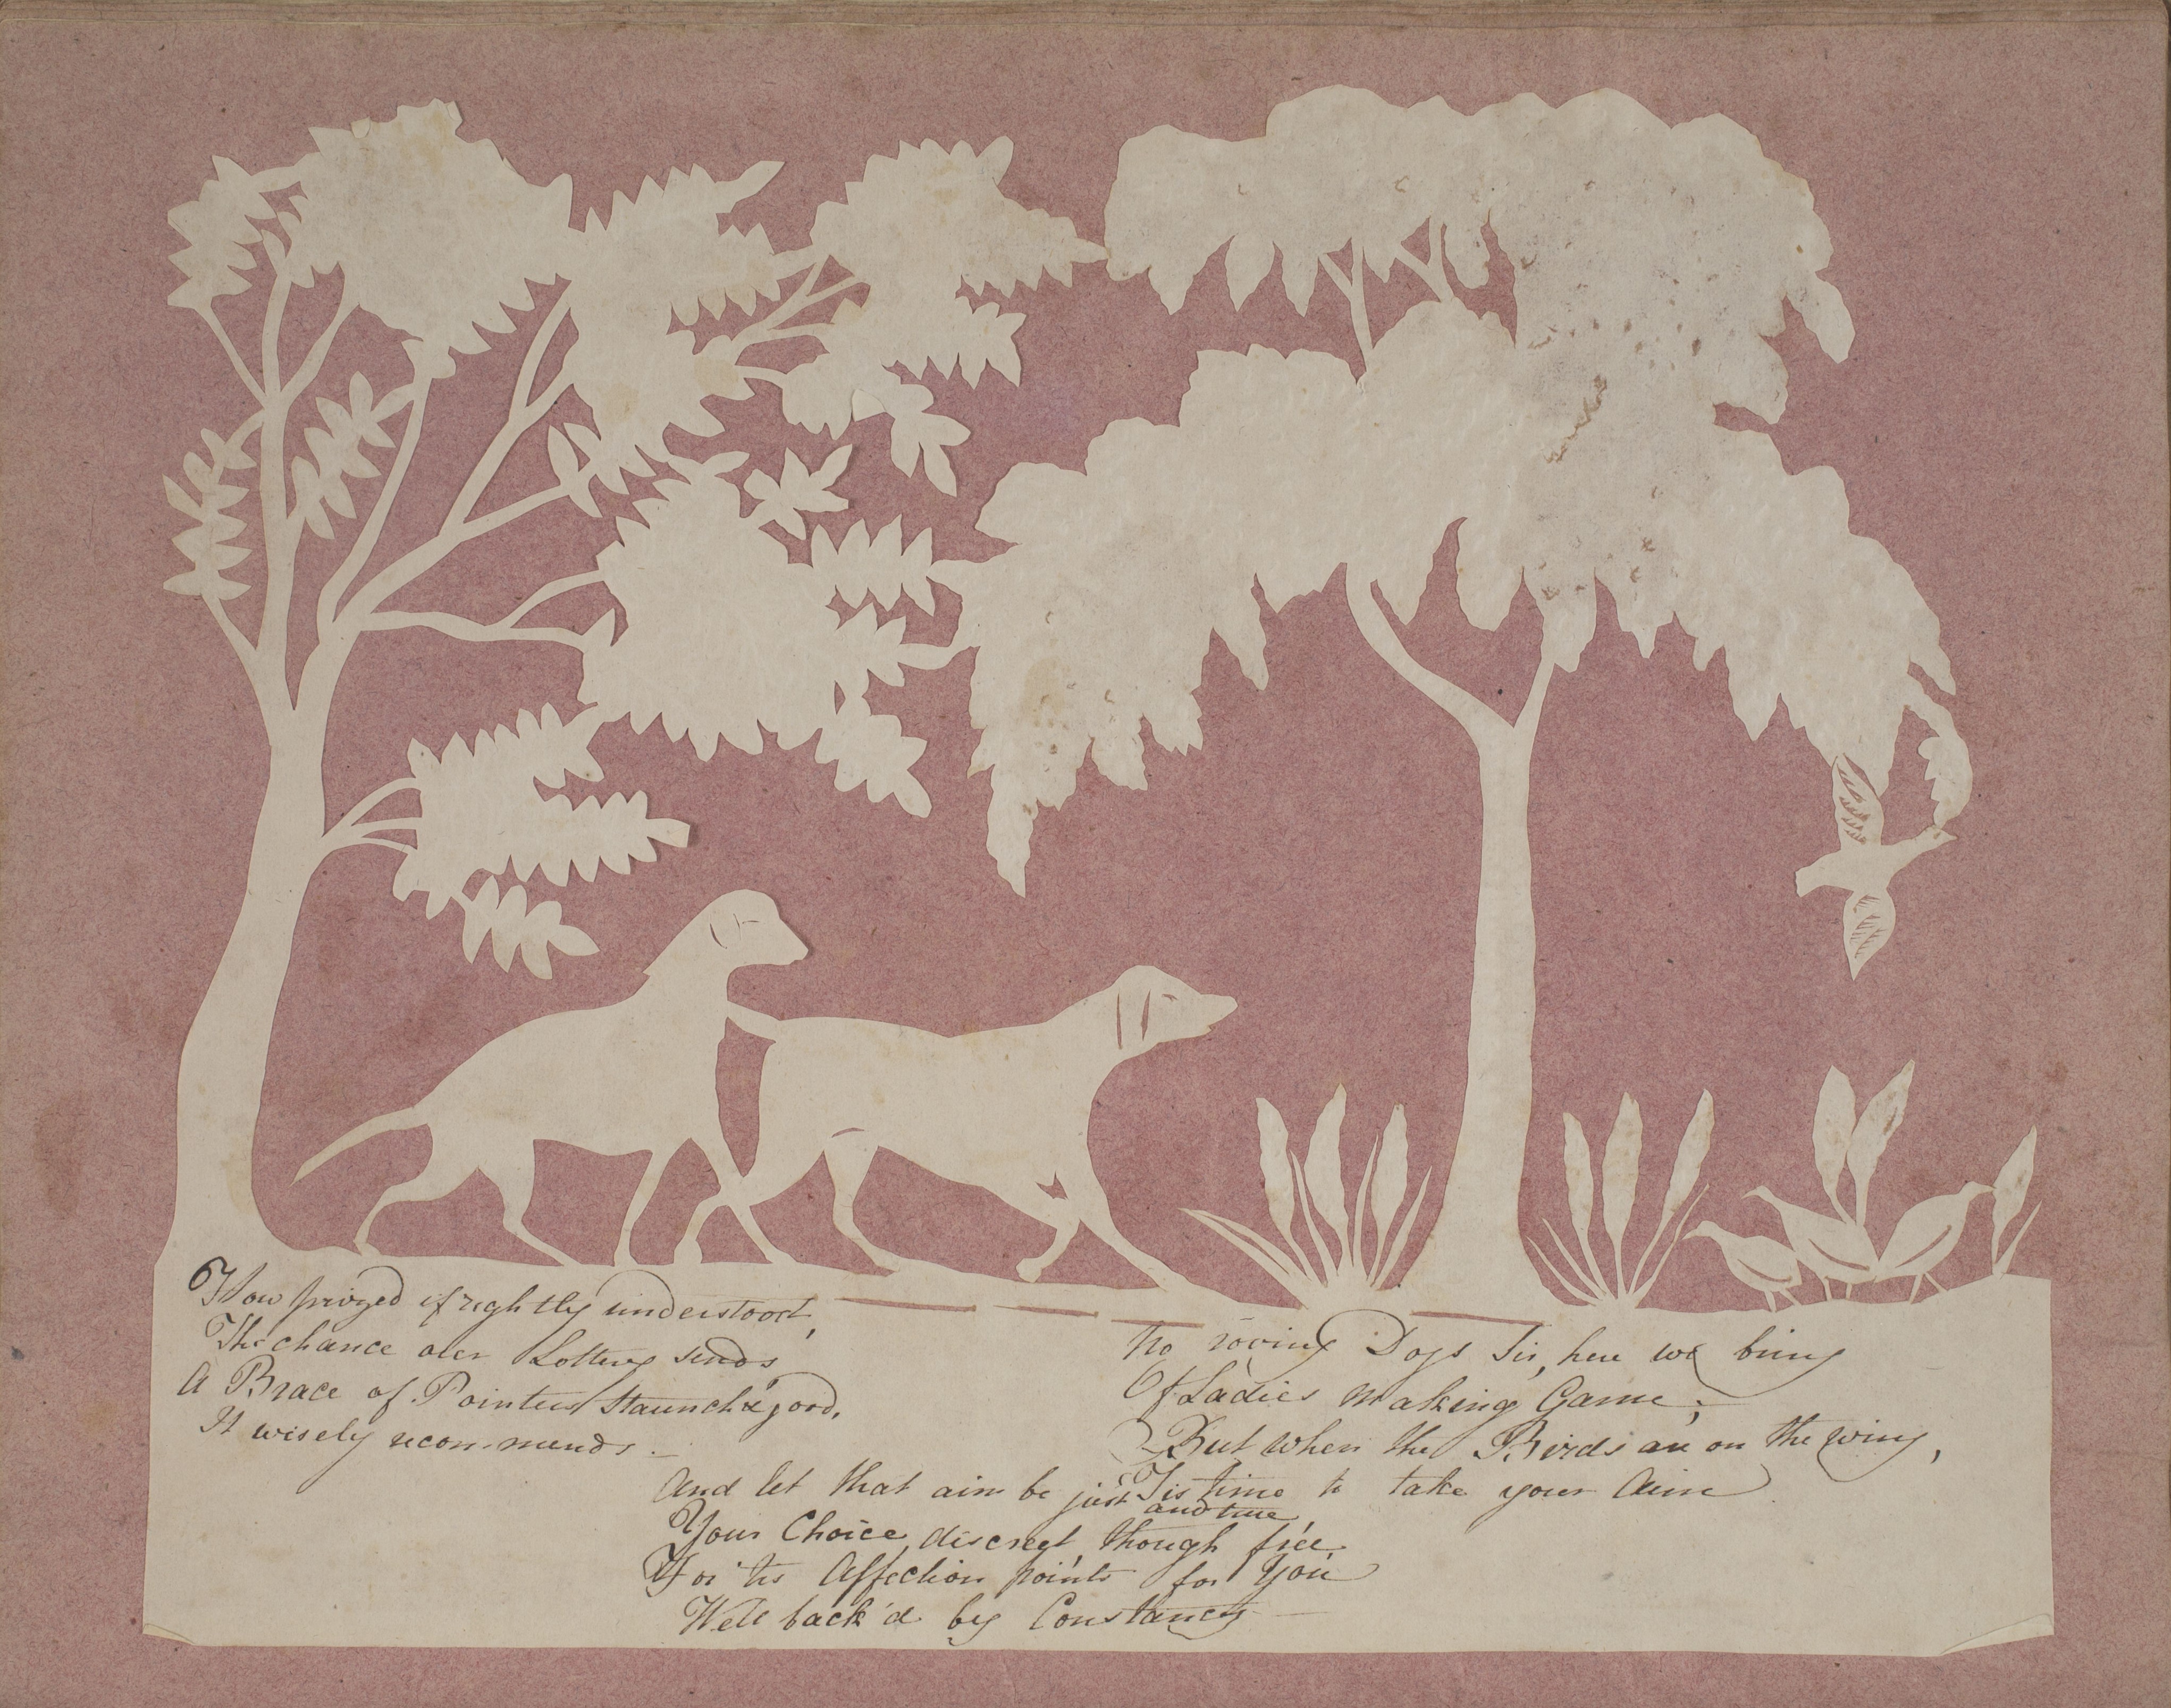 How prized if rightly understood,
The chance our Lottery sends
A Brace of Pointers Staunch & good,
It wisely recommends.
No roving Dogs Sir, here we bring
Of Ladies making Game;
But when the Birds are on the wing,
'Tis time to take your Aim
And let that aim be just and true
Your Choice discreet, though free
For 'tis Affection points for You
Well back'd by Constancy